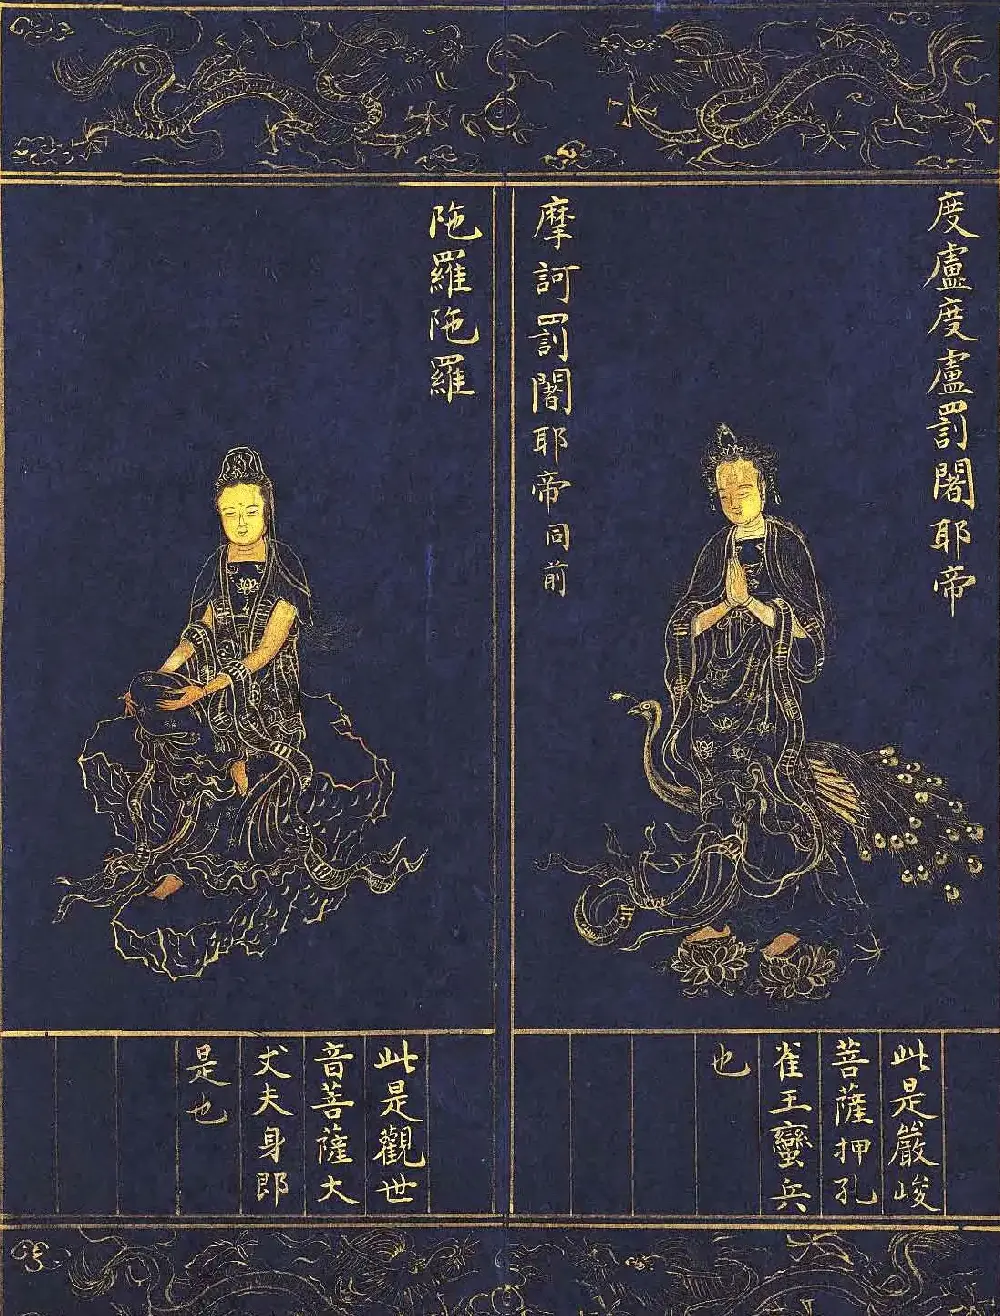 度盧度盧罰闍耶帝
摩訶罰闍耶帝同前
此是嚴峻
菩薩押孔
雀王蠻兵
也
陁羅陁羅
此是觀世
音菩薩大
丈夫身即
是也